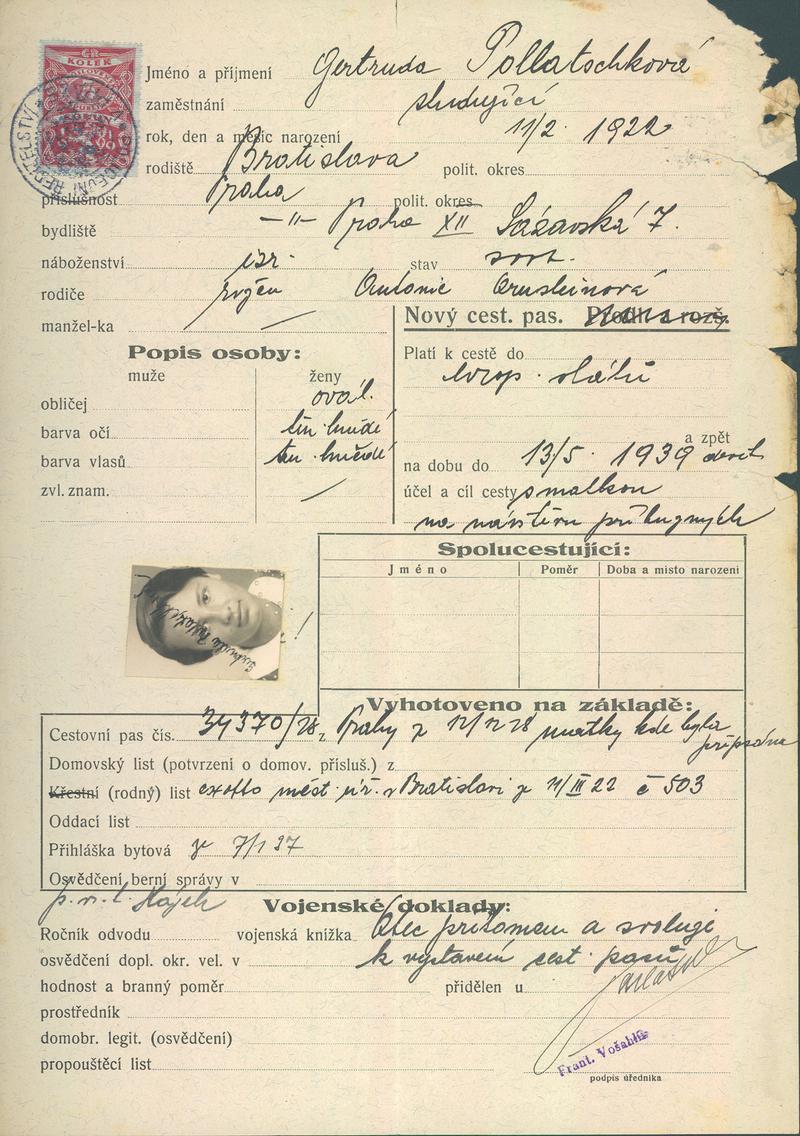 ČR
KOLEK
Jméno a příjmení Gertruda Pollatschková
zaměstnání studující
rok, den a měsíc narození 11/2. 1922
rodiště Bratislava polit. okres
příslušnost Praha polit. okres
bydliště —"— Praha XII Sázavská 7.
náboženství isr. stav svob.
rodiče Evžen Antonie Ornsteinová
manžel-ka —
Nový cest. pas. Prodl. a rozš.
Popis osoby:
muže ženy
obličej ovál.
barva očí tm. hnědé
barva vlasů tm. hnědé
zvl. znam. —
Platí k cestě do
evrop. států
a zpět
na dobu do 13/5. 1939
účel a cíl cesty s matkou
na návštěvu příbuzných
Spolucestující:
Jméno Poměr Doba a místo narození
Vyhotoveno na základě:
Cestovní pas čís. 34370/28 z Prahy z 12/12 28 matky kde byla
připsána
Domovský list (potvrzení o domov. přísluš.) z
Křestní (rodný) list měst. úř. v Bratislavi z 11/III 22 č 503
Oddací list
Přihláška bytová z 7/1 37
Osvědčení berní správy v
Vojenské doklady:
Ročník odvodu vojenská knížka Otec přítomen a svoluje
osvědčení dopl. okr. vel. v k vystavení cest. pasu
hodnost a branný poměr přidělen u
prostředník
domobr. legit. (osvědčení)
propouštěcí list
Frant. Vošahlík
podpis úředníka